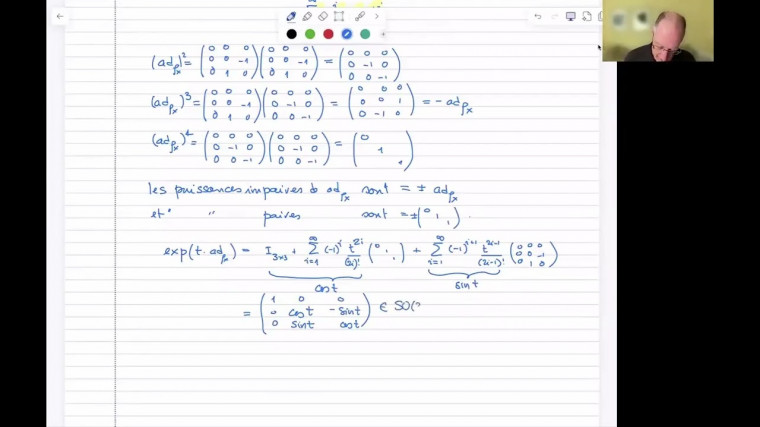 (ad_ρx)² = (0 0 0 / 0 0 -1 / 0 1 0) (0 0 0 / 0 0 -1 / 0 1 0) = (0 0 0 / 0 -1 0 / 0 0 -1)
(ad_ρx)³ = (0 0 0 / 0 0 -1 / 0 1 0) (0 0 0 / 0 -1 0 / 0 0 -1) = (0 0 0 / 0 0 1 / 0 -1 0) = - ad_ρx
(ad_ρx)⁴ = (0 0 0 / 0 -1 0 / 0 0 -1) (0 0 0 / 0 -1 0 / 0 0 -1) = (0 / 1 / 1)
les puissances impaires de ad_ρx sont = ± ad_ρx
et " " paires sont = ± (0 / 1 / 1) .
exp(t · ad_ρx) = I_3x3 + ∑_{i=1}^∞ (-1)^i t^{2i}/(2i)! (0 / 1 / 1) + ∑_{i=1}^∞ (-1)^{i+1} t^{2i-1}/(2i-1)! (0 0 0 / 0 0 -1 / 0 1 0)
cost sint
= (1 0 0 / 0 cost -sint / 0 sint cost) ∈ SO(